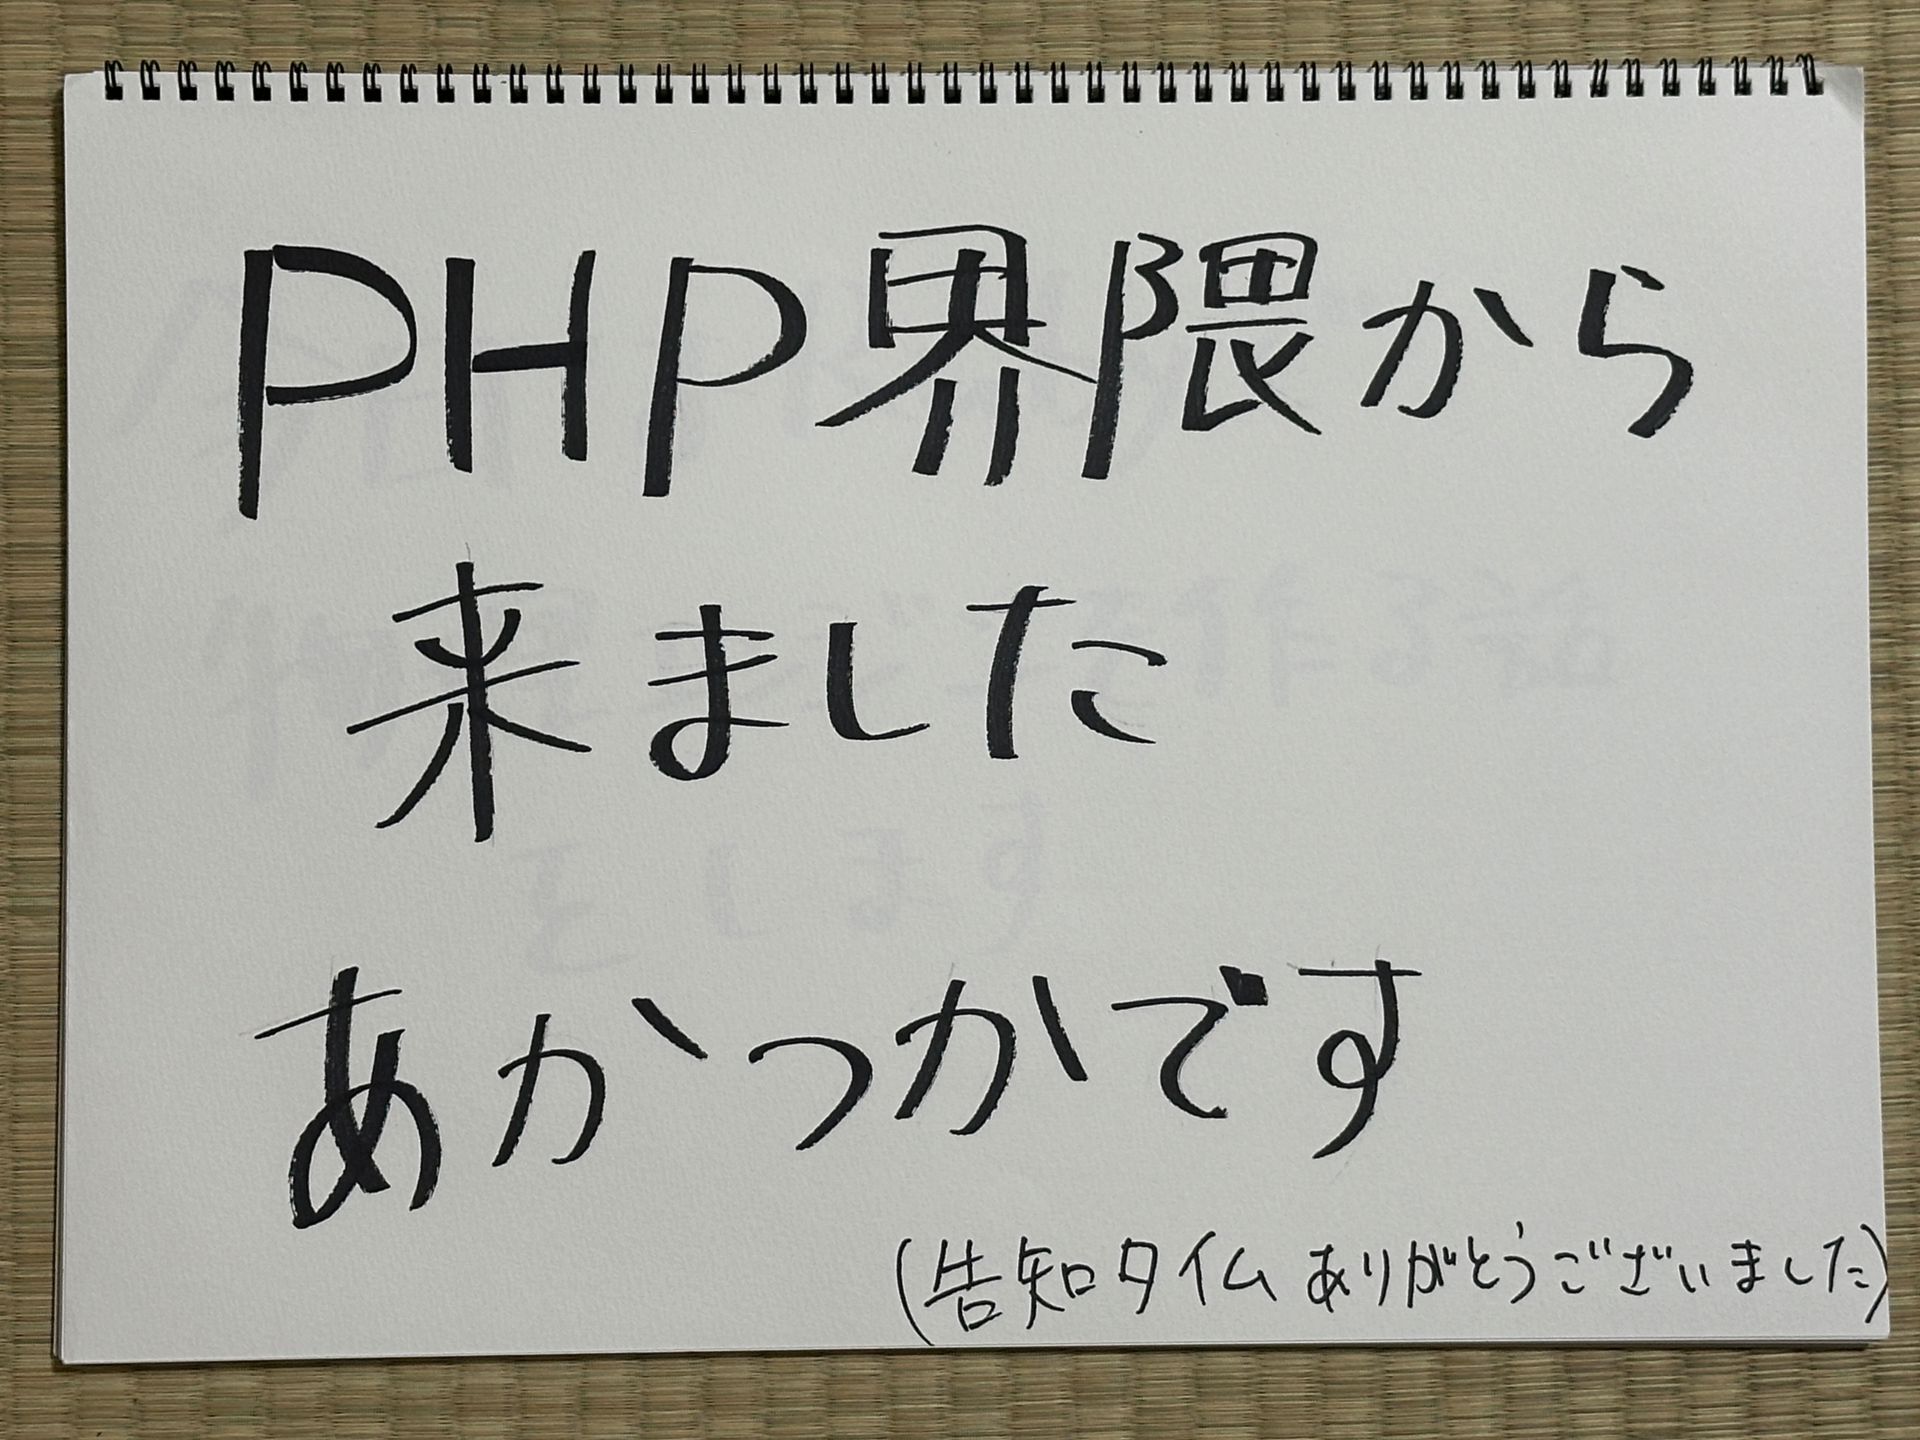 PHP界隈から
来ました
あかつかです
(告知タイム ありがとうございました)